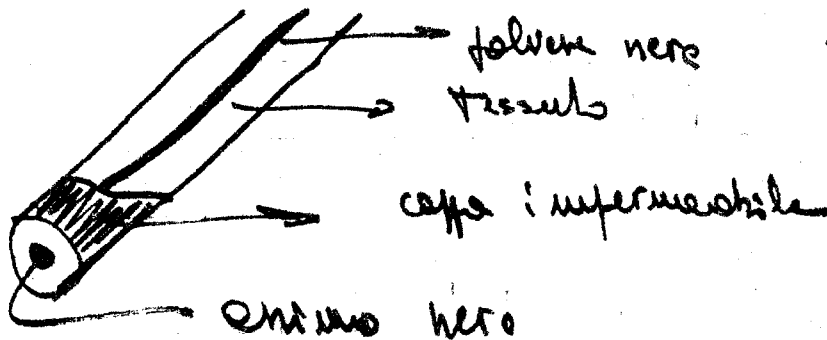 polvere nera
tessuto
cappa impermeabile
animo nero